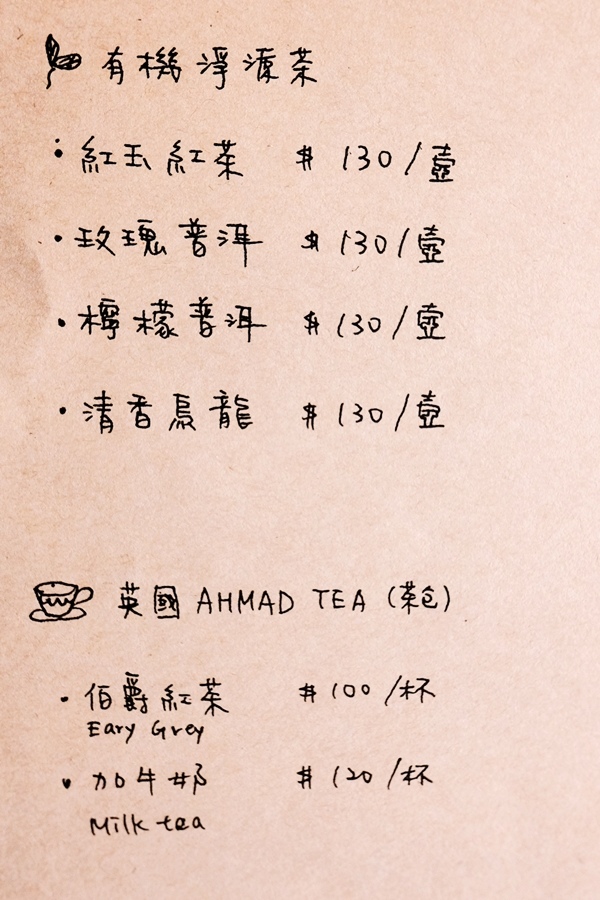 有機淨源茶
· 紅玉紅茶 $130/壺
· 玫瑰普洱 $130/壺
· 檸檬普洱 $130/壺
· 清香烏龍 $130/壺
英國 AHMAD TEA (茶包)
· 伯爵紅茶 $100/杯
Eary Grey
· 加牛奶 $120/杯
Milk tea